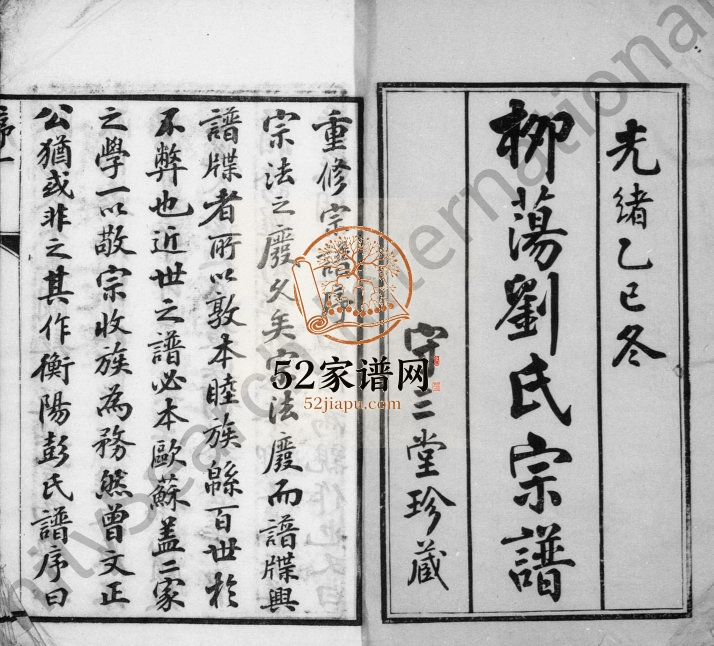 光緒乙巳冬
柳蕩劉氏宗譜
守三堂珍藏
重修宗譜序
宗法之廢久矣宗法廢而譜牒興
譜牒者所以敦本睦族緜百世於
不弊也近世之譜必本歐蘇蓋二家
之學一以敬宗收族為務然曾文正
公猶或非之其作衡陽彭氏譜序曰
序一
52家谱网
52jiapu.com